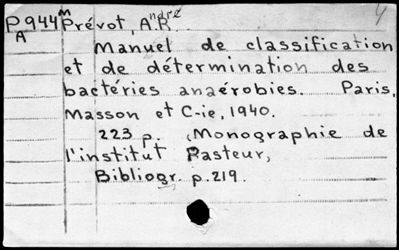 P944m Prévot, André R
A
Manuel de classification
et de détermination des
bactéries anaérobies. Paris,
Masson et C-ie, 1940.
223 p. (Monographie de
l'institut Pasteur,
Bibliogr. p.219.